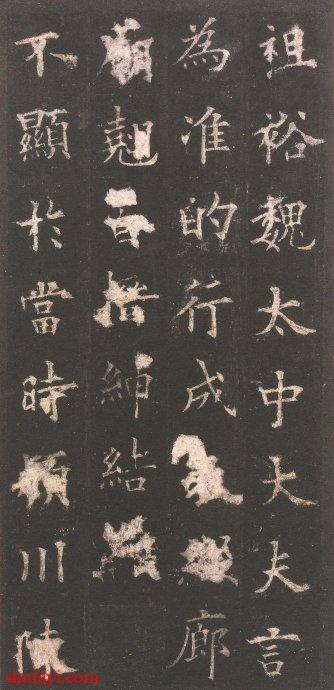 祖裕魏太中大夫言
為准的行成廊
廟剋百紳結
不顯於當時潁川陳
shufayi.com